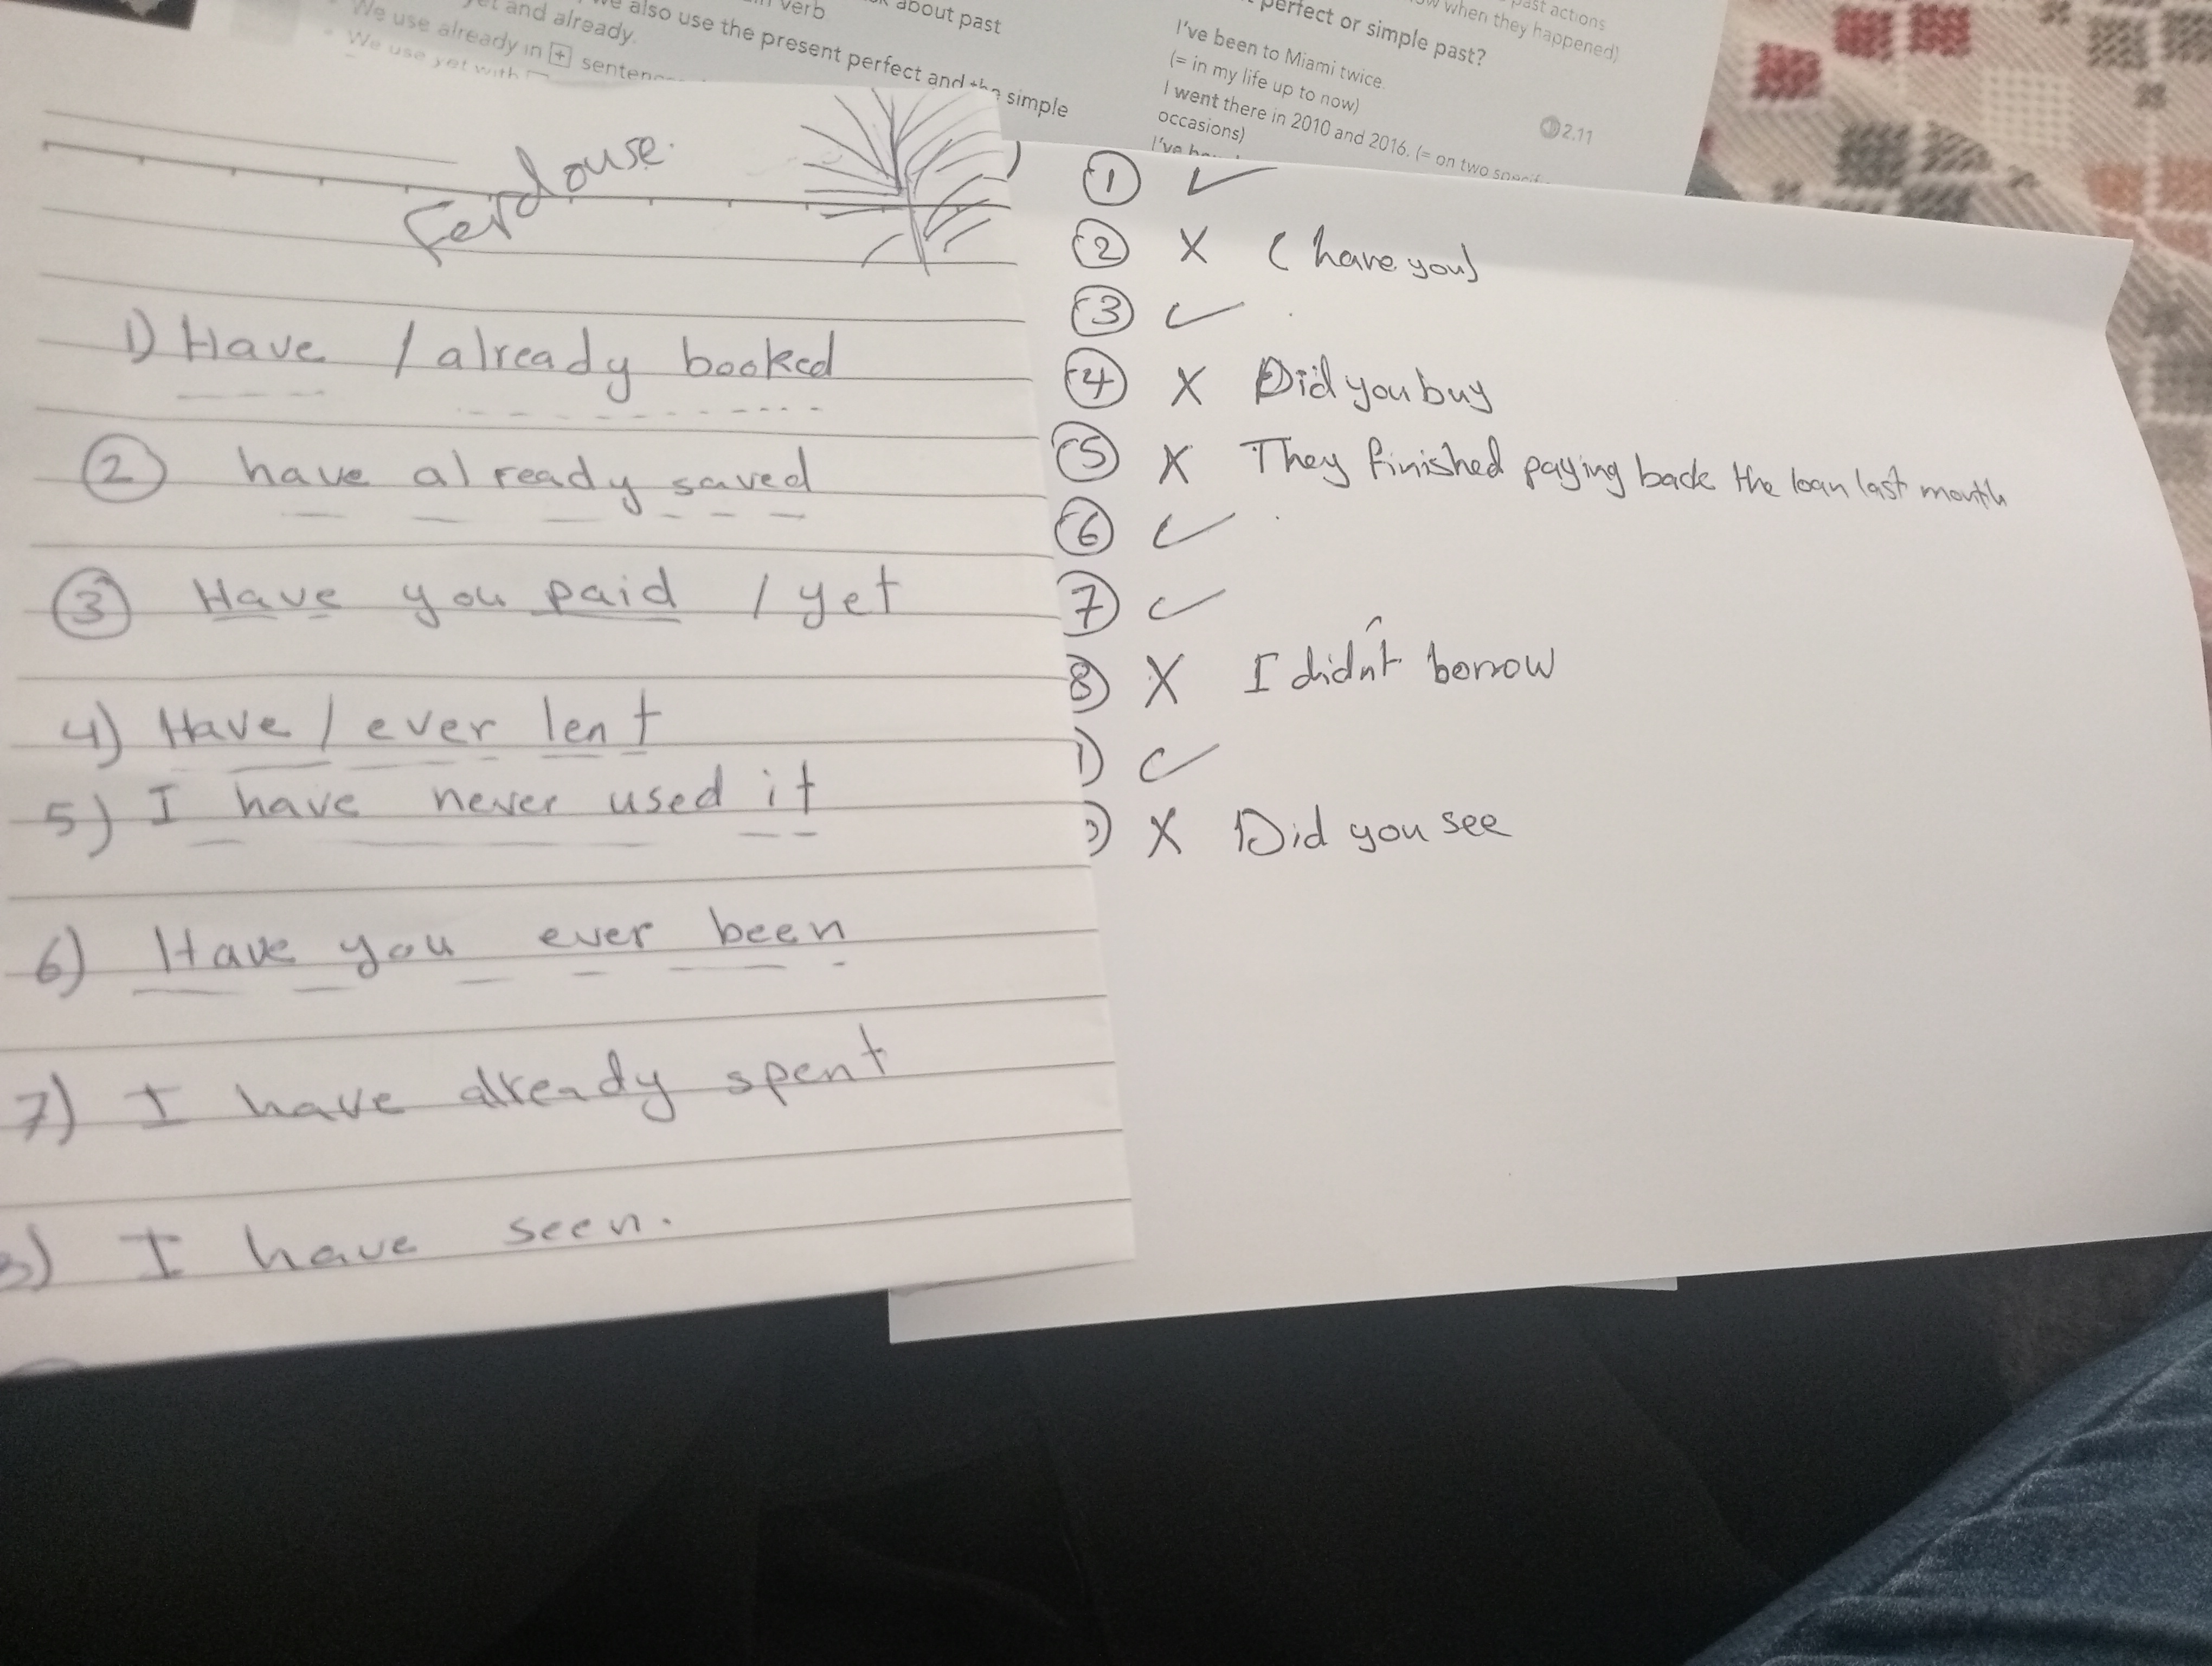 verb
about past
yet and already.
we also use the present perfect and the simple
We use already in + sentenc
We use yet with
past actions
when they happened)
perfect or simple past?
I've been to Miami twice.
(= in my life up to now)
I went there in 2010 and 2016. (= on two specif
occasions)
I've
2.11
Ferdouse.
1) Have / already booked
② have already saved
③ Have you paid / yet
4) Have / ever lent
5) I have never used it
6) Have you ever been
7) I have already spent
) I have seen.
① ✓
② X (have you)
③ ✓
④ X Did you buy
⑤ X They finished paying back the loan last month
⑥ ✓
⑦ ✓
⑧ X I didn't borrow
) ✓
) X Did you see